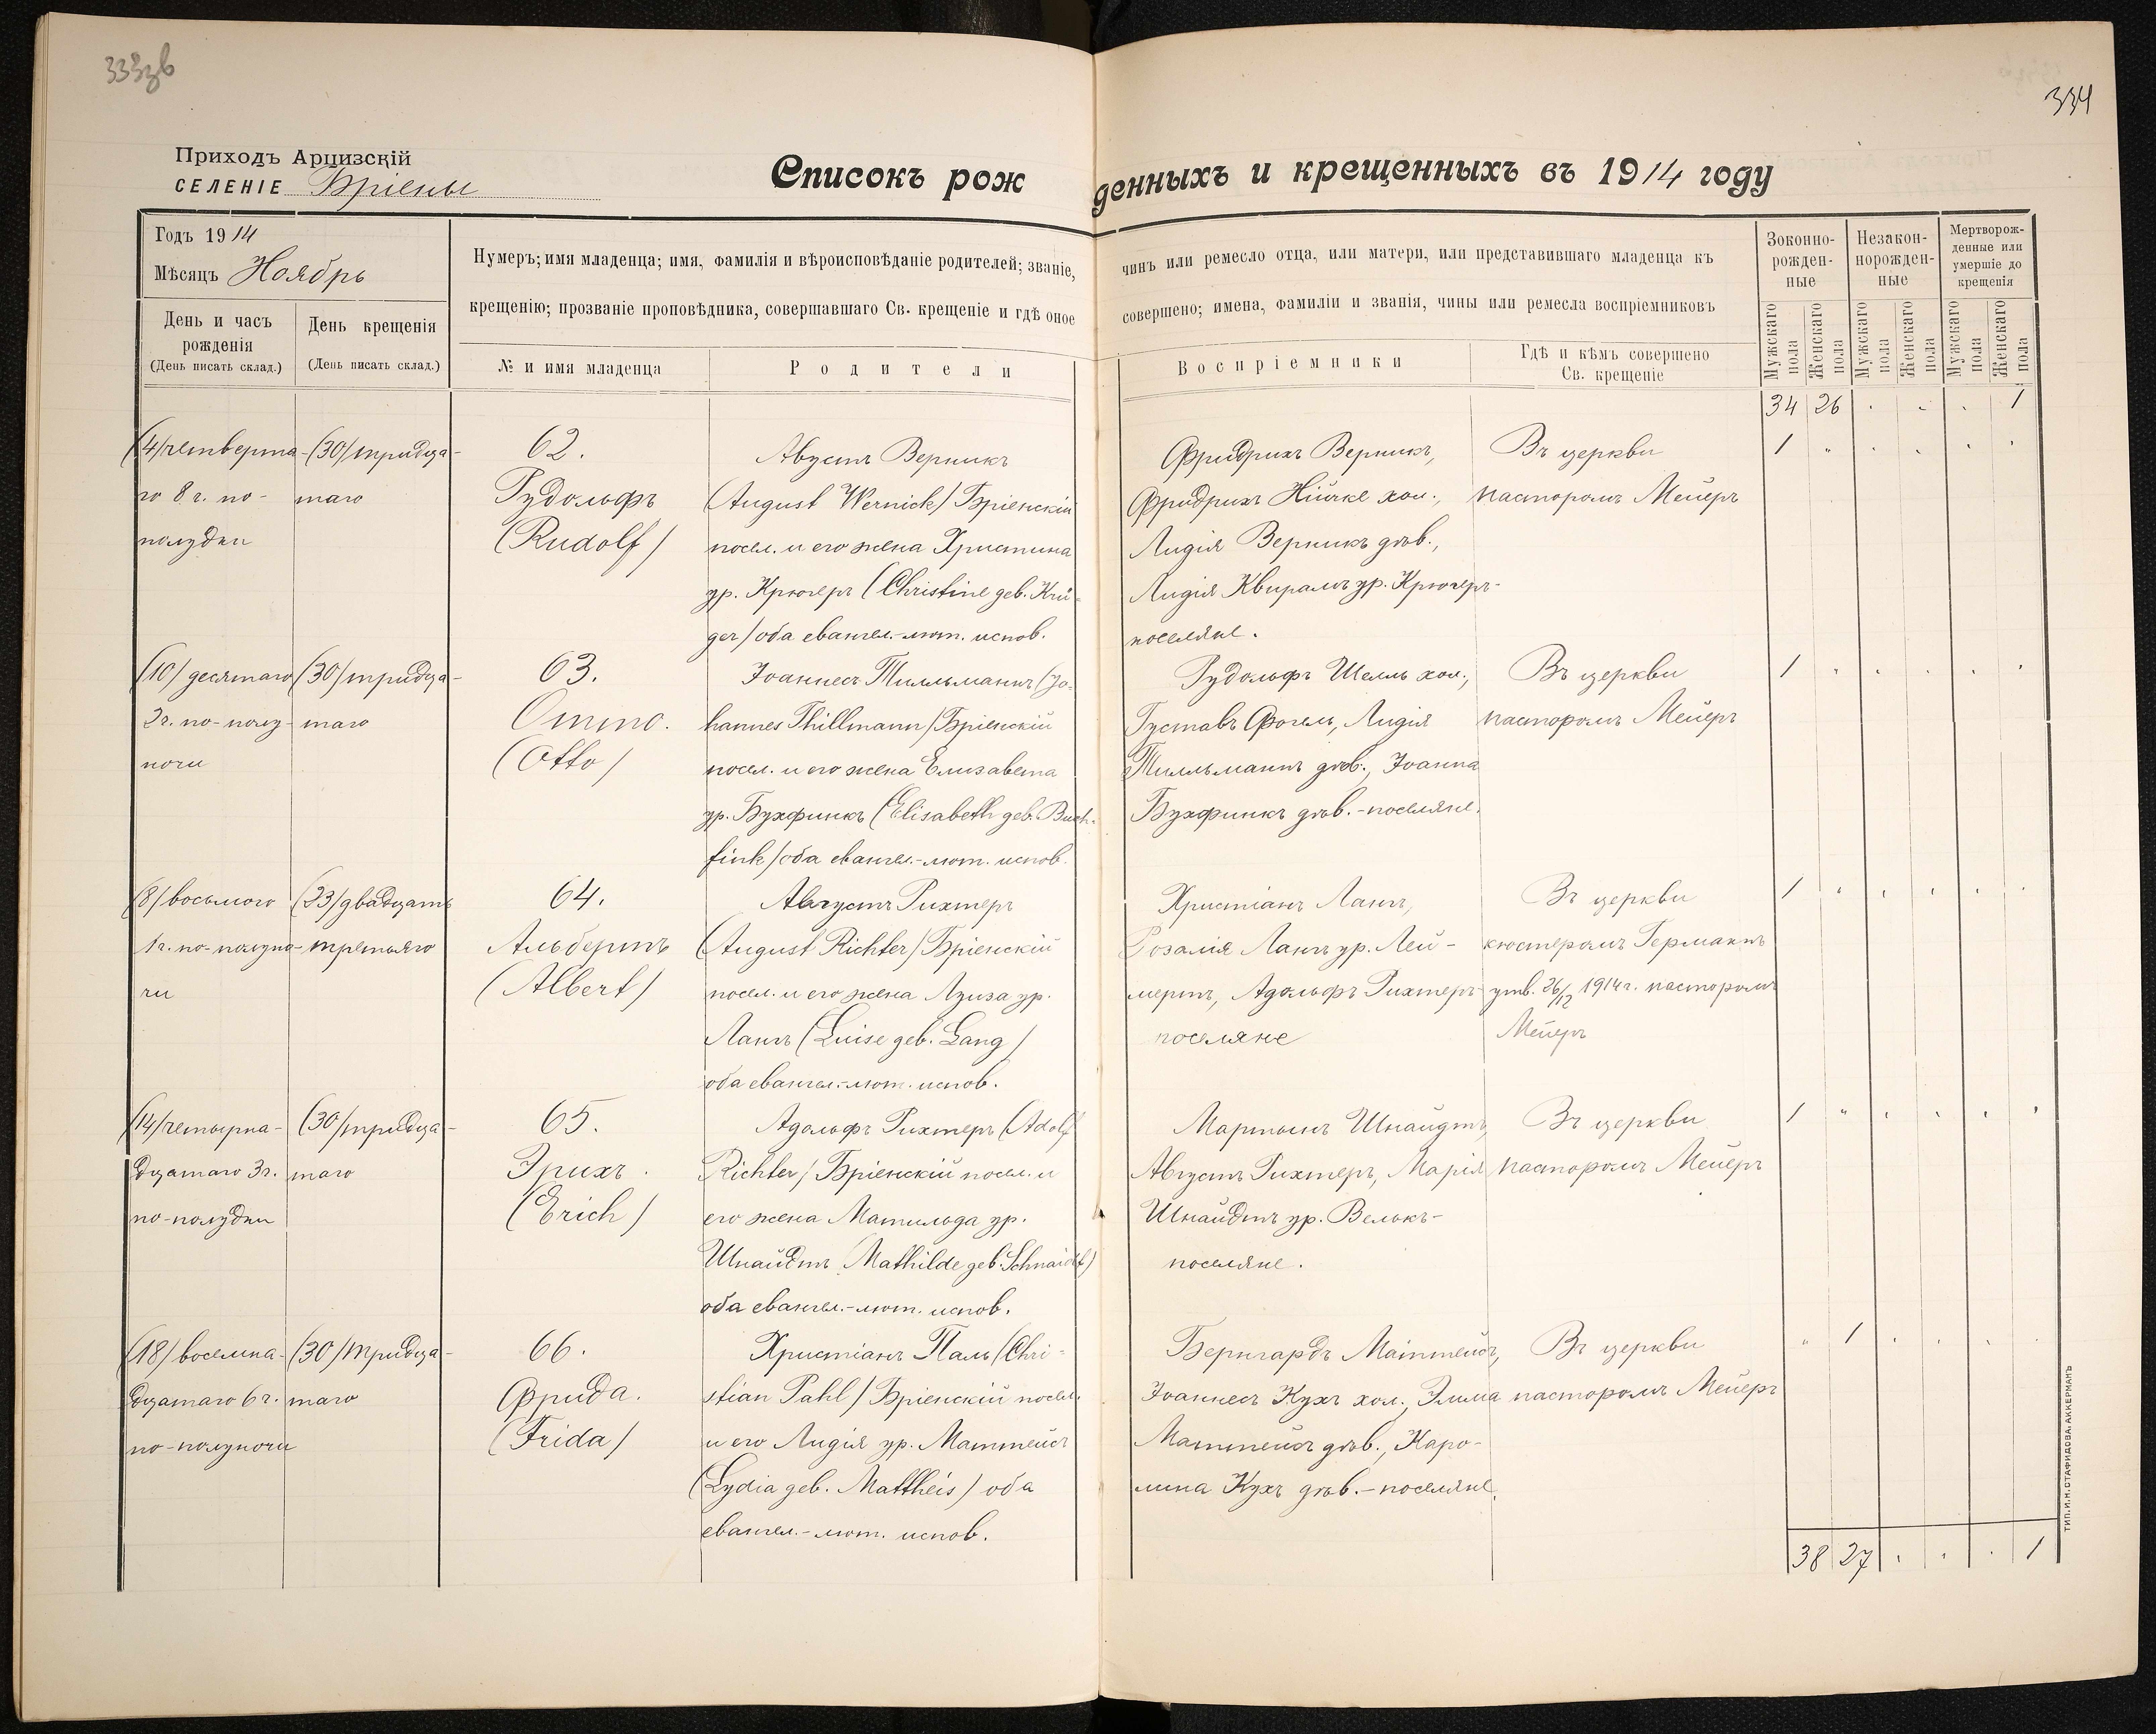 333зв
334
Приходъ Арцизскій
СЕЛЕНІЕ Бріены
Списокъ рожденныхъ и крещенныхъ въ 1914 году
Годъ 1914
Мѣсяцъ Ноябрь
Нумеръ; имя младенца; имя, фамилія и вѣроисповѣданіе родителей; званіе, чинъ или ремесло отца, или матери, или представившаго младенца къ
крещенію; прозваніе проповѣдника, совершавшаго Св. крещеніе и гдѣ оное совершено; имена, фамиліи и званія, чины или ремесла воспріемниковъ
День и часъ
рожденія
(День писать склад.)
День крещенія
(День писать склад.)
№ и имя младенца
Родители
Воспріемники
Гдѣ и кѣмъ совершено
Св. крещеніе
Зоконно-
рожден-
ные
Незакон-
норожден-
ные
Мертворож-
денные или
умершіе до
крещенія
Мужскаго пола
Женскаго пола
Мужскаго пола
Женскаго пола
Мужскаго пола
Женскаго пола
34 26 . . . 1
(4/четверта-
го 8 г. по-
полудни
(30/тридца-
таго
62.
Рудольфъ
(Rudolf/
Августъ Верникъ
(August Wernick/ Бріенскій
посел. и его жена Христина
ур. Крюгеръ (Christine geb. Krü-
ger/ оба евангел.-лют. испов.
Фридрихъ Верникъ,
Фридрихъ Нійчке хол.,
Лидія Верникъ дѣв.,
Лидія Квирамъ ур. Крюгеръ-
поселяне.
Въ церкви
пасторомъ Мейеръ
1 . . . . .
(10/ десятаго
2 г. по-полу-
ночи
(30/ тридца-
таго
63.
Отто.
(Otto/
Іоаннесъ Тилльманнъ (Jo-
hannes Thillmann/ Бріенскій
посел. и его жена Елизавета
ур. Бухфинкъ (Elisabeth geb. Buch-
fink/ оба евангел.-лют. испов.
Рудольфъ Шелль хол.,
Густавъ Фогель, Лидія
Тилльманнъ дѣв., Іоанна
Бухфинкъ дѣв.-поселяне.
Въ церкви
пасторомъ Мейеръ
1 . . . . .
(8/ восьмого
1 г. по-полуно-
чи
(23/ двадцать
третьяго
64.
Альбертъ
(Albert/
Августъ Рихтеръ
(August Richter/ Бріенскій
посел. и его жена Луиза ур.
Лангъ (Luise geb. Lang/
оба евангел.-лют. испов.
Христіанъ Лангъ,
Розалія Лангъ ур. Лей-
мертъ, Адольфъ Рихтеръ-
поселяне
Въ церкви
кюстеромъ Германнъ
утв. 26/12 1914 г. пасторомъ
Мейеръ
1 . . . . .
(14/четырна-
дцатаго 3 г.
по-полудни
(30/тридца-
таго
65.
Эрихъ.
(Erich/
Адольфъ Рихтеръ (Adolf
Richter/ Бріенскій посел. и
его жена Матильда ур.
Шнайдтъ (Mathilde geb. Schnaidt)
оба евангел.-лют. испов.
Мартынъ Шнайдтъ,
Августъ Рихтеръ, Марія
Шнайдтъ ур. Велькъ-
поселяне.
Въ церкви
пасторомъ Мейеръ
1 . . . . .
(18/ восемна-
дцатаго 6 г.
по-полуночи
(30/тридца-
таго
66.
Фрида.
(Frida/
Христіанъ Паль (Chri-
stian Pahl/ Бріенскій посел.
и его Лидія ур. Маттейсъ
(Lydia geb. Mattheis) оба
евангел.-лют. испов.
Бернгардъ Маттейсъ,
Іоаннесъ Кухъ хол., Элма
Маттейсъ дѣв., Каро-
лина Кухъ дѣв.-поселяне.
Въ церкви
пасторомъ Мейеръ
. 1 . . . .
38 27 . . . 1
ТИП. И. Н. СТАФИДОВА. АККЕРМАНЪ